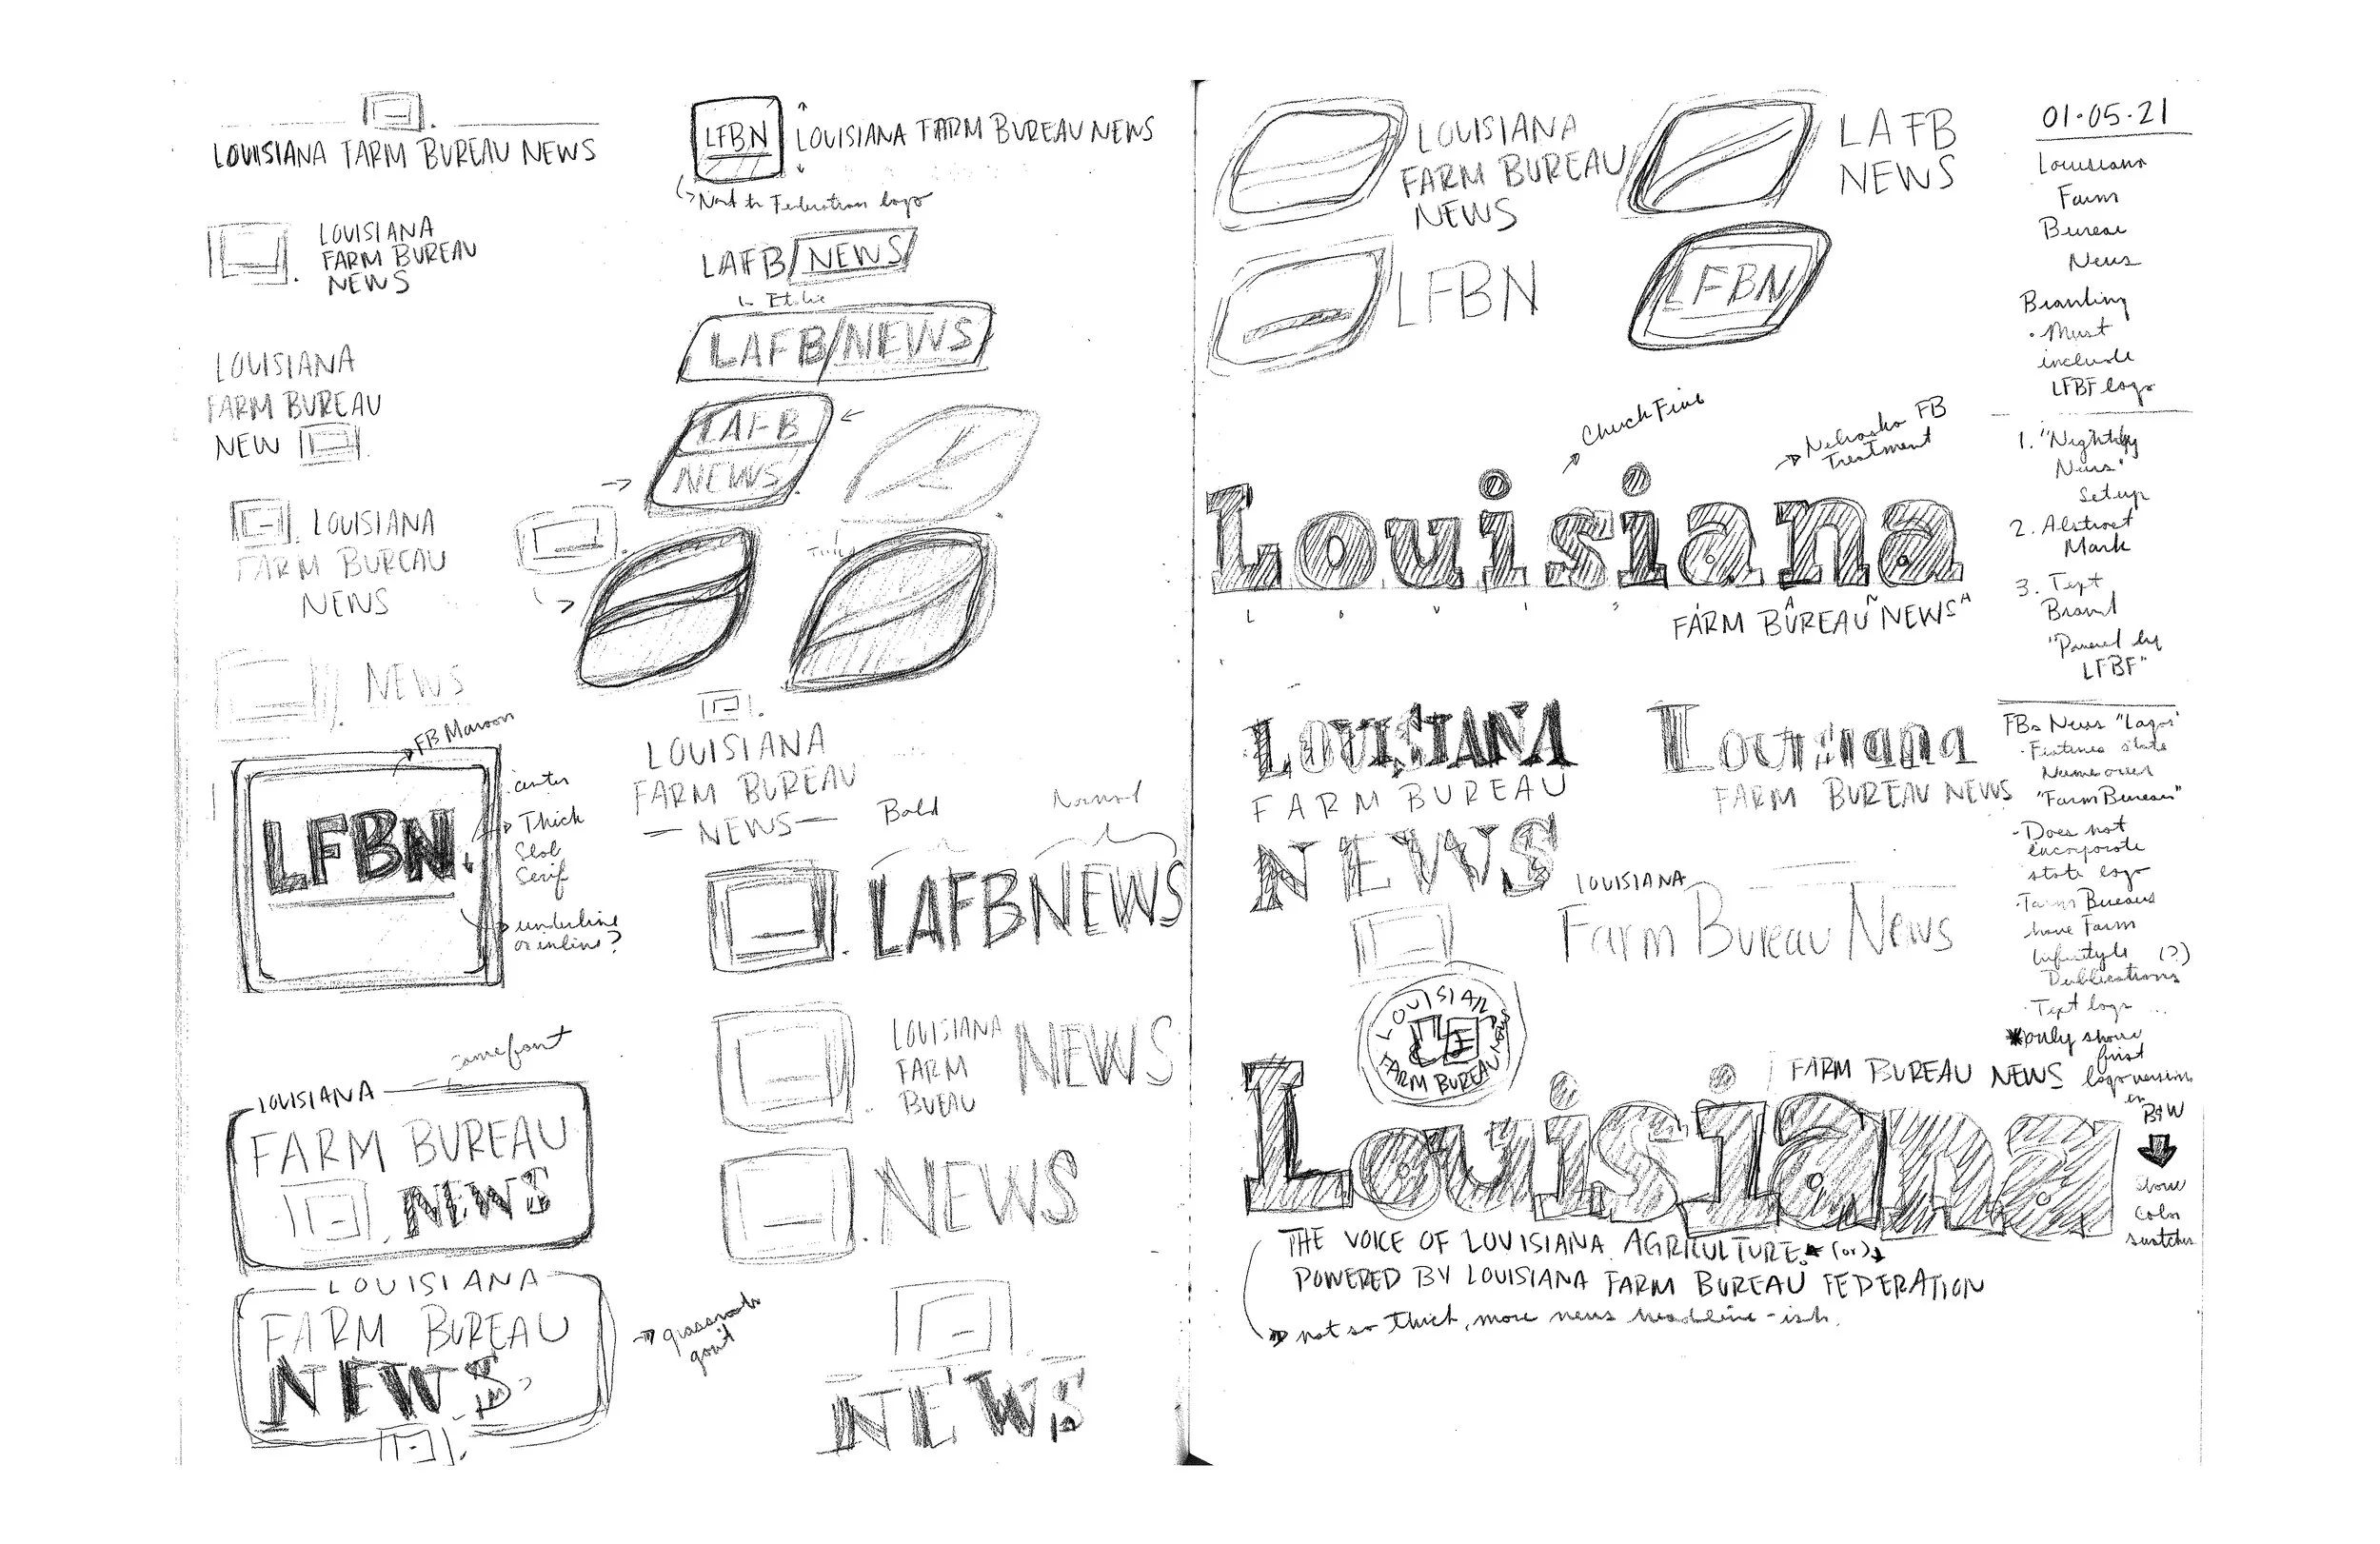 LOUISIANA FARM BUREAU NEWS
LOUISIANA
FARM BUREAU
NEWS
LOUISIANA
FARM BUREAU
NEW
LOUISIANA
FARM BUREAU
NEWS
NEWS
FB Maroon
LFBN
center
Thick
Slab
Serif
underline
or inline?
same font
LOUISIANA
FARM BUREAU
NEWS
LOUISIANA
FARM BUREAU
NEWS
grassroots
gov't
LFBN
LOUISIANA FARM BUREAU NEWS
Federation logo
LAFB/NEWS
LAFB/NEWS
LAFB
NEWS
LOUISIANA
FARM BUREAU
NEWS
Bold
Normal
LAFBNEWS
LOUISIANA
FARM
BUEAU
NEWS
NEWS
NEWS
LOUISIANA
FARM BUREAU
NEWS
LAFB
NEWS
LFBN
LFBN
Nebraska FB
Treatment
Louisiana
FARM BUREAU NEWS
LOUISIANA
FARM BUREAU
NEWS
Louisiana
FARM BUREAU NEWS
LOUISIANA
Farm Bureau News
FARM BUREAU NEWS
FARM BUREAU NEWS
Louisiana
THE VOICE OF LOUISIANA AGRICULTURE (or)
POWERED BY LOUISIANA FARM BUREAU FEDERATION
not so thick, more news headline-ish.
01.05.21
Louisiana
Farm
Bureau
News
Branding
• Must
include
LFBF logo
1. "Nightly
News"
Setup
2. Abstract
Mark
3. Text
Brand
"Powered by
LFBF"
FBs News "Logos"
· Features state
Name over
"Farm Bureau"
- Does not
incorporate
state logo
· Farm Bureaus
have Farm
Lifestyle (?)
Publications
· Text logo ...
*only show
first
logo version
in
B&W
show
color
swatches